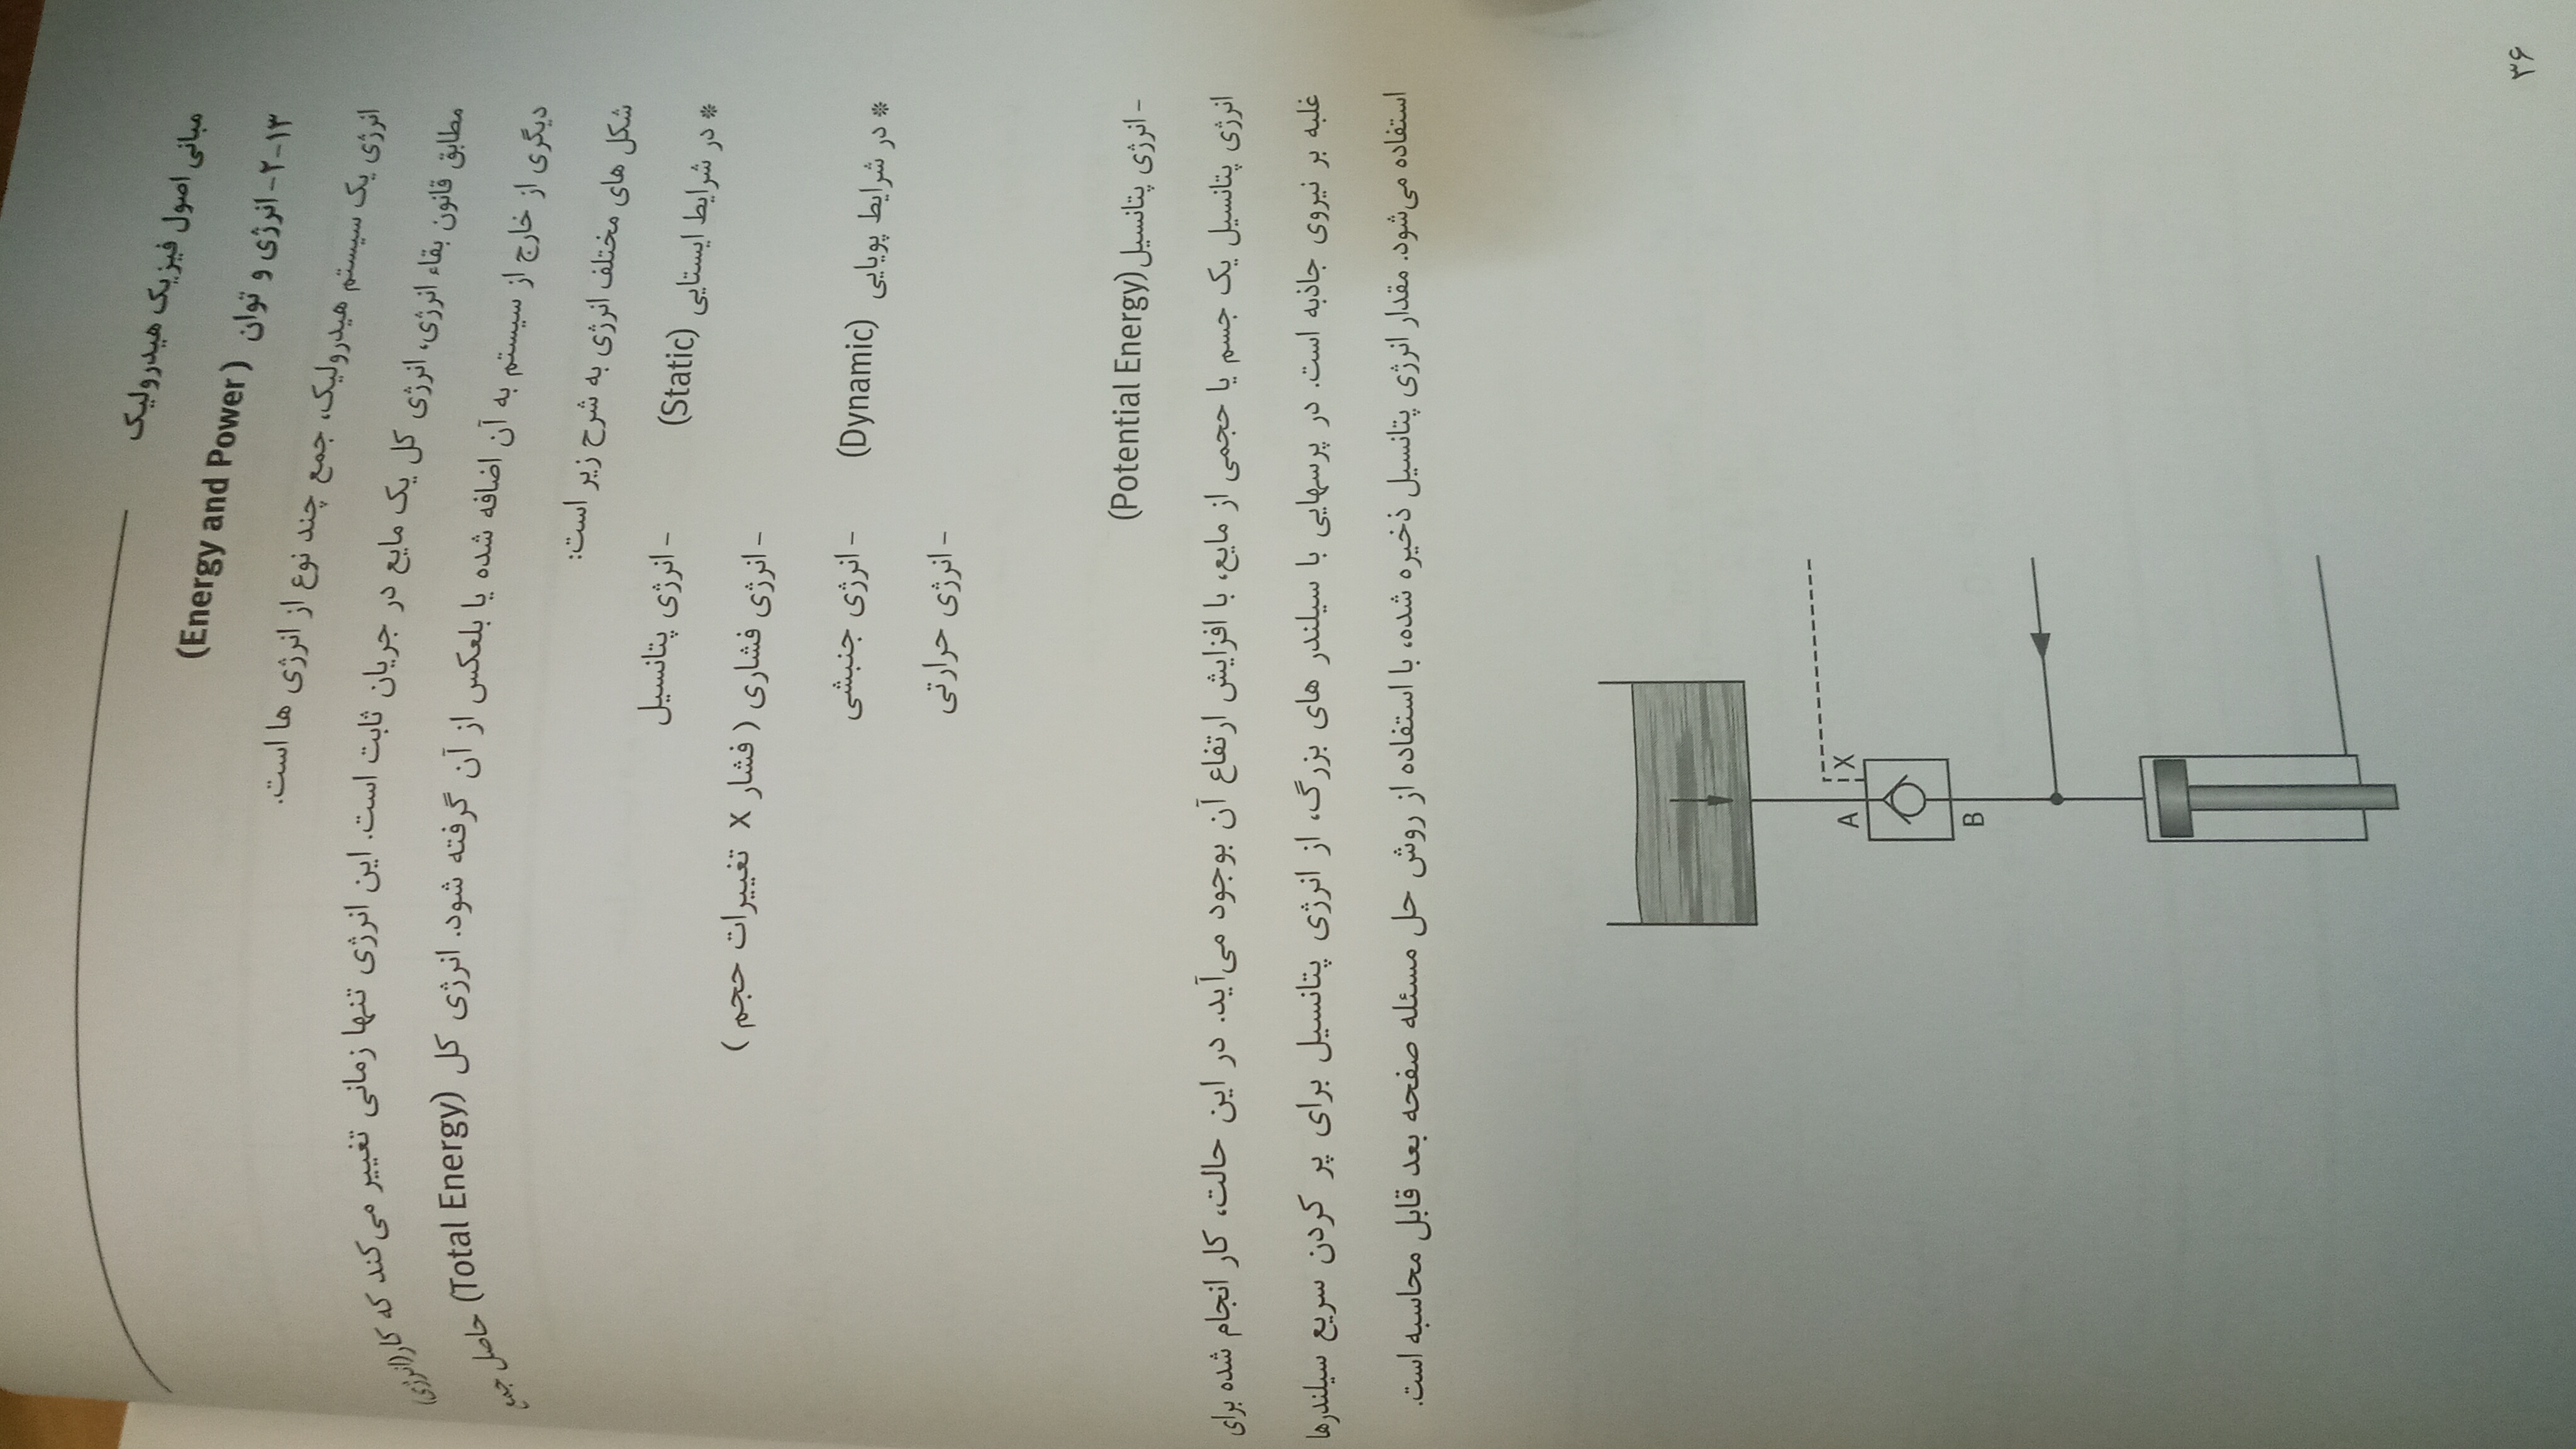 مبانی اصول فیزیک هیدرولیک
۲-۱۳- انرژی و توان (Energy and Power)
انرژی یک سیستم هیدرولیک، جمع چند نوع از انرژی ها است.
مطابق قانون بقاء انرژی، انرژی کل یک مایع در جریان ثابت است. این انرژی تنها زمانی تغییر می‌کند که کار(انرژی)
دیگری از خارج از سیستم به آن اضافه شده یا بلعکس از آن گرفته شود. انرژی کل (Total Energy) حاصل جمع
شکل های مختلف انرژی به شرح زیر است:
* در شرایط ایستایی (Static) - انرژی پتانسیل
- انرژی فشاری ( فشار X تغییرات حجم )
* در شرایط پویایی (Dynamic) - انرژی جنبشی
- انرژی حرارتی
- انرژی پتانسیل(Potential Energy)
انرژی پتانسیل یک جسم یا حجمی از مایع، با افزایش ارتفاع آن بوجود می‌آید. در این حالت، کار انجام شده برای
غلبه بر نیروی جاذبه است. در پرسهایی با سیلندر های بزرگ، از انرژی پتانسیل برای پر کردن سریع سیلندرها
استفاده می‌شود. مقدار انرژی پتانسیل ذخیره شده، با استفاده از روش حل مسئله صفحه بعد قابل محاسبه است.
X
A
B
۳۶